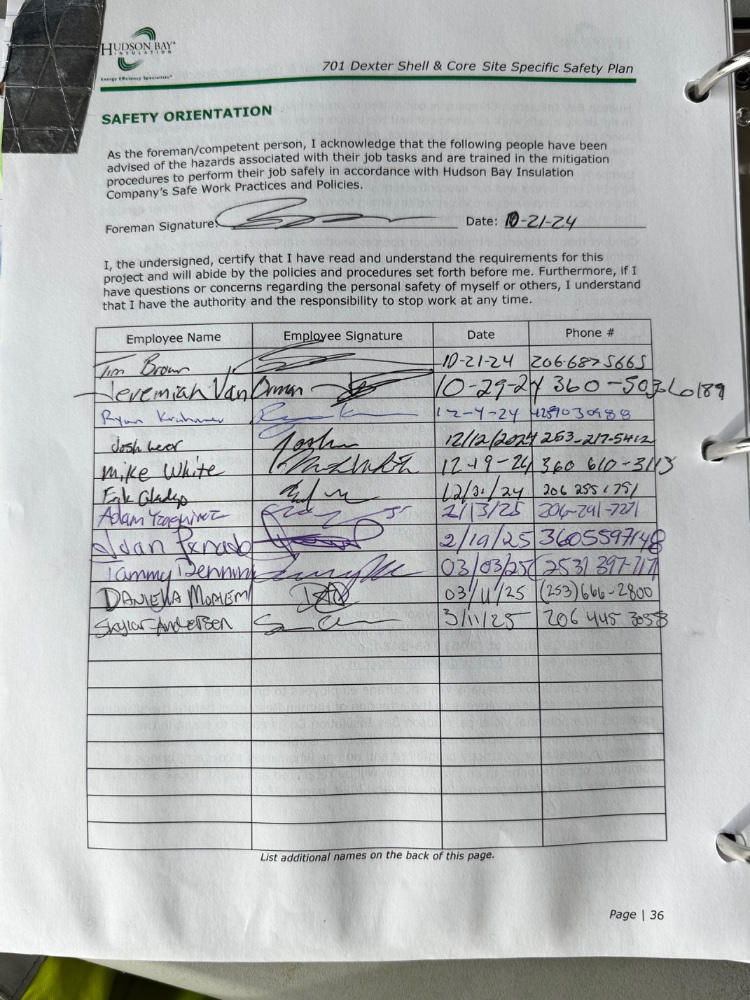 HUDSON BAY
INSULATION
Energy Efficiency Specialists
701 Dexter Shell & Core Site Specific Safety Plan
SAFETY ORIENTATION
As the foreman/competent person, I acknowledge that the following people have been
advised of the hazards associated with their job tasks and are trained in the mitigation
procedures to perform their job safely in accordance with Hudson Bay Insulation
Company's Safe Work Practices and Policies.
Foreman Signature: Date: 10-21-24
I, the undersigned, certify that I have read and understand the requirements for this
project and will abide by the policies and procedures set forth before me. Furthermore, if I
have questions or concerns regarding the personal safety of myself or others, I understand
that I have the authority and the responsibility to stop work at any time.
Employee Name Employee Signature Date Phone #
Tim Brown 10-21-24 206-687 5665
Jeremiah Van Orman 10-29-24 360-503-6189
Ryan 12-4-24
Josh 12/12/2024 253-217-5412
Mike White 12-19-24 360 610-3113
Erik 12/31/24 206 255 1751
Adam 2/13/25 206-791-7271
2/19/25 3605597148
Tammy 03/03/25 (253) 397-
DANIELLA 03/11/25 (253) 666-2800
Skylar Andersen 3/11/25 206 445 3058
List additional names on the back of this page.
Page | 36